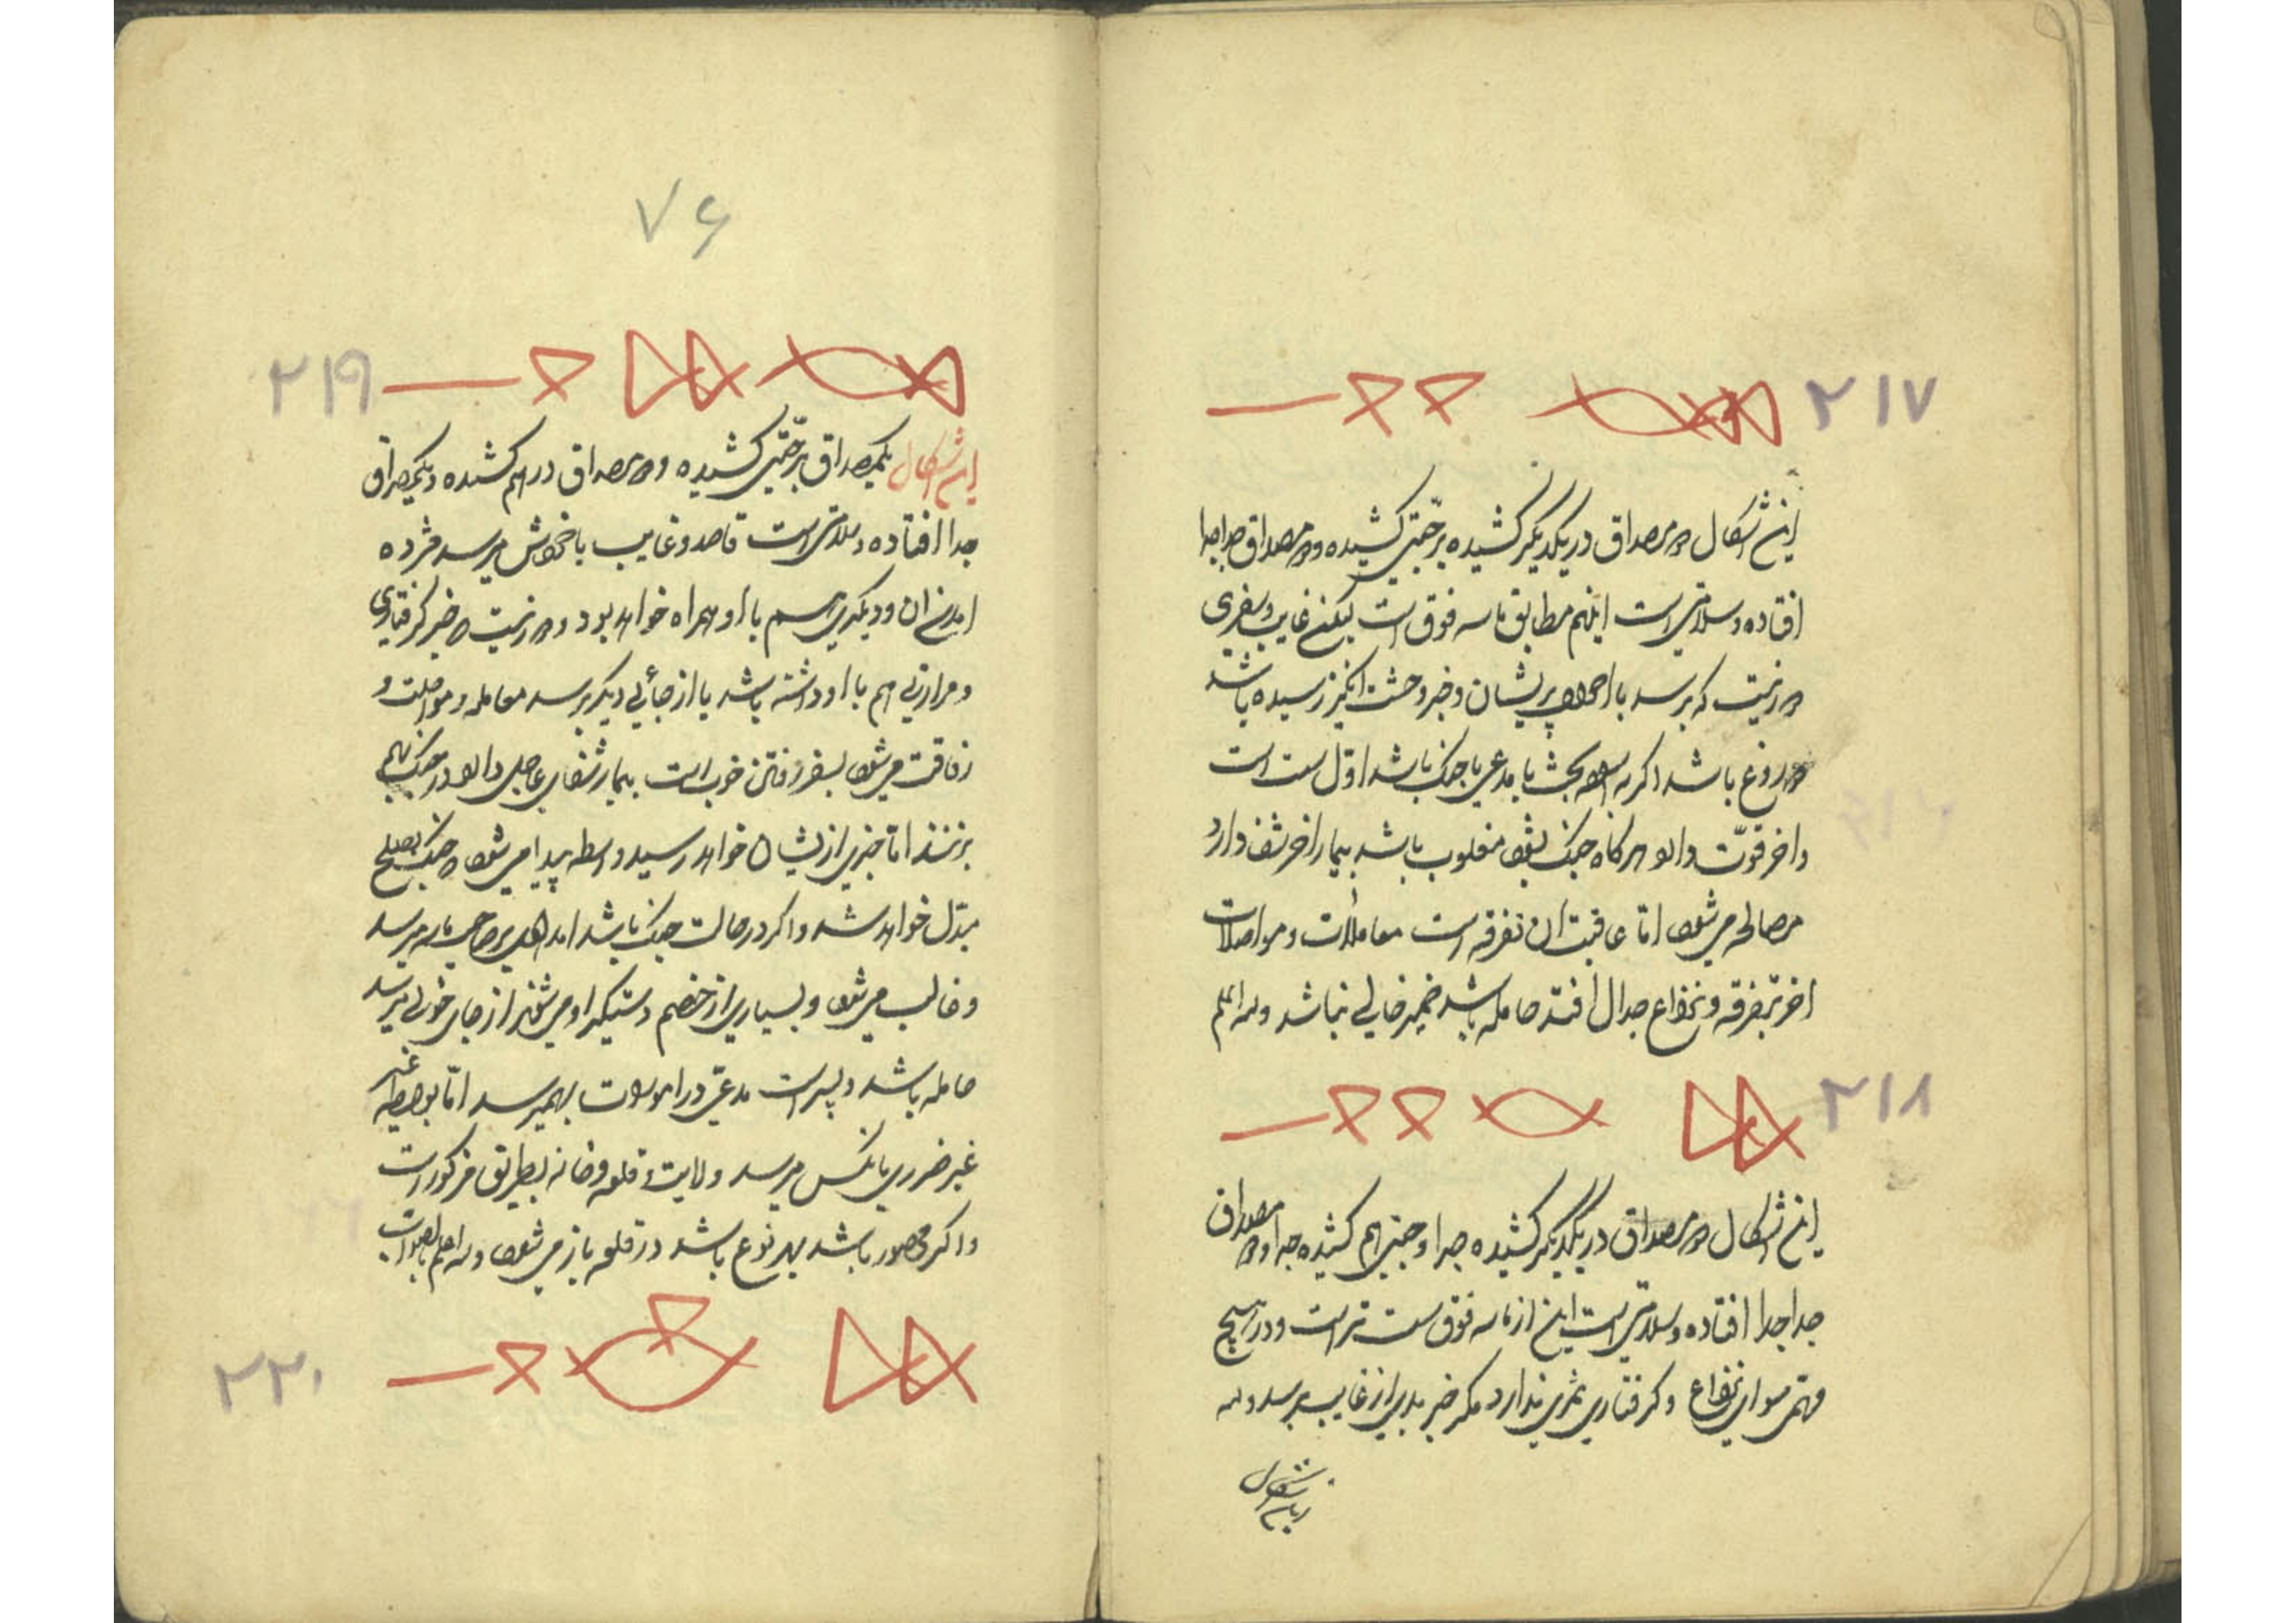 ۲۱۷
این اشکال دو مصداق در یکدیگر کشیده بر جنبی کشیده و دو مصداق جدا جدا
افتاده و سلامتی است اینهم مطابق ماسه فوق است لیکن غایب و سفری
در نیت که برسد با احوال پریشان و خبر وحشت انگیز رسیده باشد
دروغ باشد اگر بحث با مدعی یا جنگ باشد اول سست است
و اخر قوت دارد هرگاه جنگ بشود مغلوب باشد بیمار اخر شفا دارد
مصالحه میشود اما عاقبت ان تفرقه است معاملات و مواصلات
اخر بتفرقه و نزاع جدال افتد حامله باشد ضمیر خالی نباشد واله اعلم
۲۱۸
این اشکال دو مصداق در یکدیگر کشیده جدا و جنبی هم کشیده جدا و دو مصداق
جدا جدا افتاده و سلامتی است این از ماسه فوق سست تر است و در هیچ
مهمی سوای نزاع و گرفتاری ثمری ندارد مگر خبر بدی از غایب برسد واله
این اشکال
۷۶
۲۱۹
این اشکال یکمصداق بر جنبی کشیده و دو مصداق در هم کشیده و یکمصداق
جدا افتاده و سلامتی است قاصد و غایب با خود میرسد مژده
امدن ان و دیگری هم با او همراه خواهد بود و در نیت خبر گرفتاری
و مرارتی هم با او داشته باشد یا از جائی دیگر برسد معامله و مواصلت و
رفاقت میشود بسفر رفتن خوب است بیمار شفای عاجل دارد در جنگ بهم
نزنند اما خبری از ایشان خواهد رسید و واسطه پیدا میشود جنگ بصلح
مبدل خواهد شد و اگر در حالت جنگ باشد امدادی بر صاحب ماسه میرسد
و غالب میشود و بسیاری از خصم دستگیر او میشوند از جای خوبی میرسد
حامله باشد و پسر است مدعی در اموالات بهمیرسد اما بواسطه غیر
غیر ضرری بانکس میرسد ولایت و قلعه و خانه بطریق مذکور است
و اگر محصور باشد بهر نوع باشد در قلعه باز میشود واله اعلم بالصواب
۲۲۰